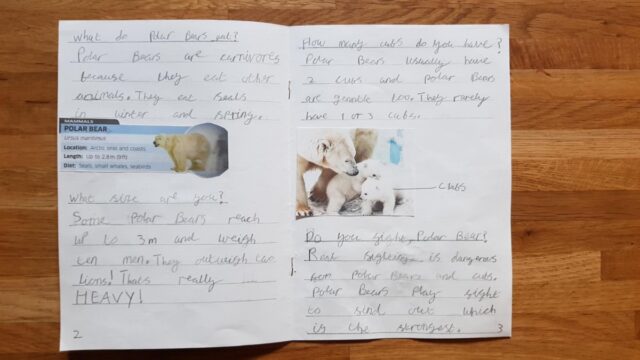 What do Polar Bears eat?
Polar Bears are carnivores
because they eat other
animals. They eat seals
in winter and spring.
MAMMALS
POLAR BEAR
Ursus maritimus
Location: Arctic seas and coasts
Length: Up to 2.8m (9ft)
Diet: Seals, small whales, seabirds
What size are you?
Some Polar Bears reach
up to 3m and weigh
ten men. They outweigh two
lions! Thats really
HEAVY!
2
How many cubs do you have?
Polar Bears usually have
2 cubs and Polar Bears
are gentle too. They rarely
have 1 or 3 cubs.
cubs
Do you fight, Polar Bear?
Real fighting is dangerous
for Polar Bears and cubs.
Polar Bears play fight
to find out which
is the strongest.
3